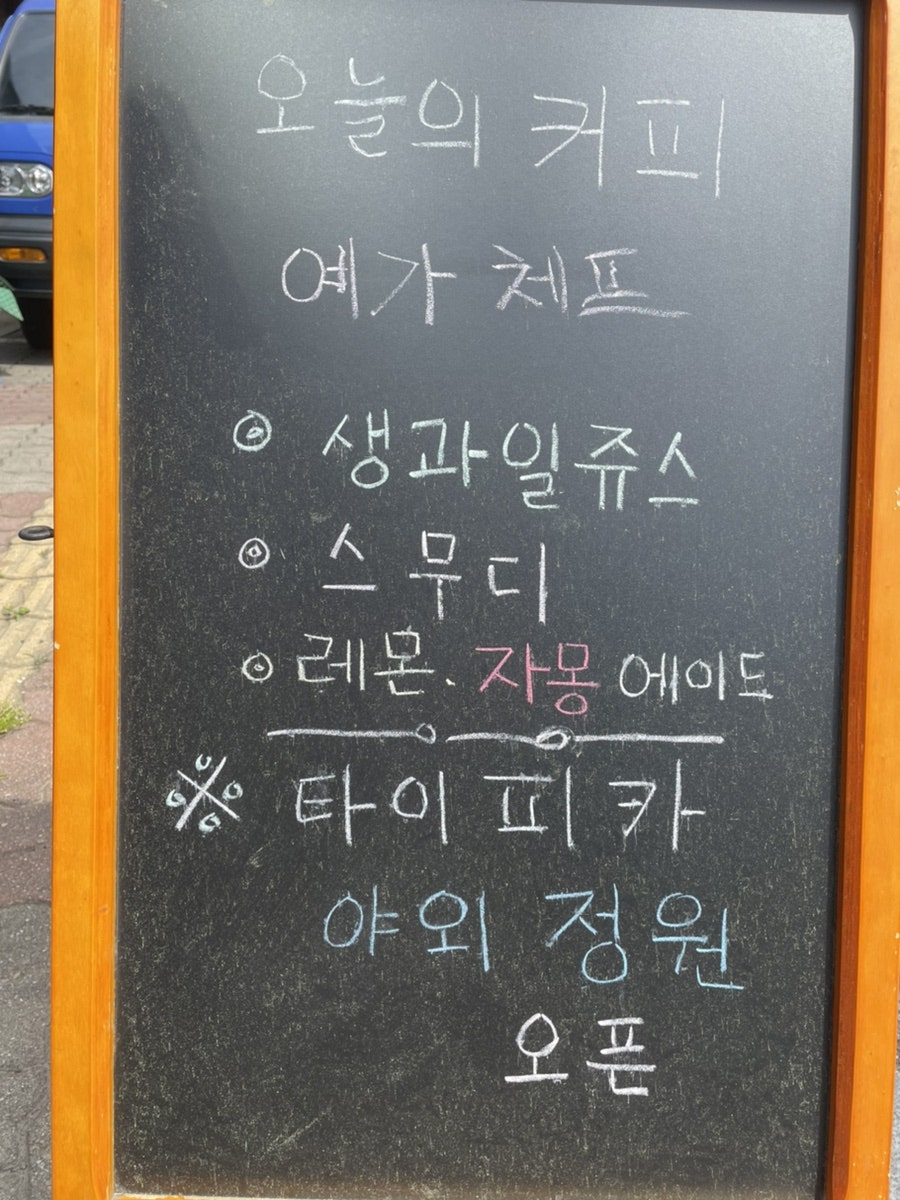 오늘의 커피
예가 체프
◉ 생과일쥬스
◉ 스무디
◉ 레몬. 자몽 에이드
※ 타이피카
야외 정원
오픈